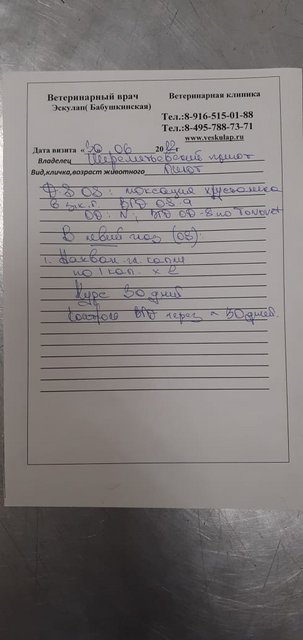 Ветеринарный врач
Эскулап( Бабушкинская)
Ветеринарная клиника
Тел.:8-916-515-01-88
Тел.:8-495-788-73-71
www.veskulap.ru
Дата визита «30 . 06 2022г
Владелец Шереметьевский приют
Вид,кличка,возраст животного
D-S OS: люксация хрусталика
В
OD: N, ВГД OD-8 по Tonovet
В левый глаз (OS):
1. гл. капли
по 1 кап. x 2
Курс 30 дней
Контроль ВГД через ≈ 30 дней.